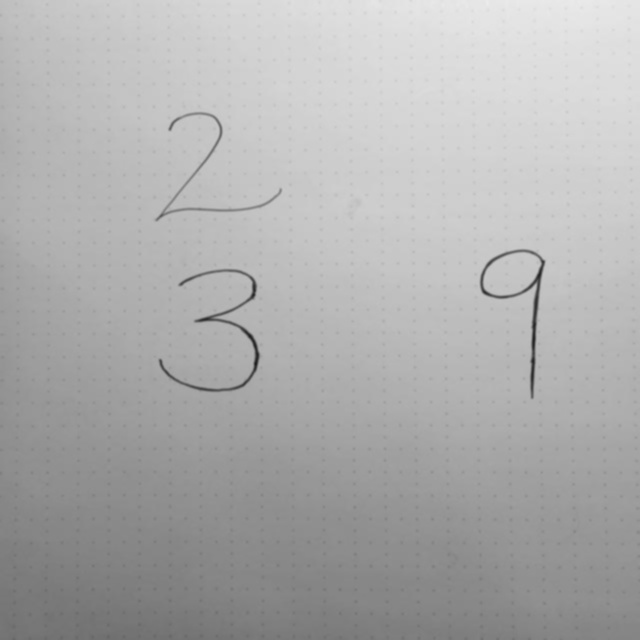 2
3 9